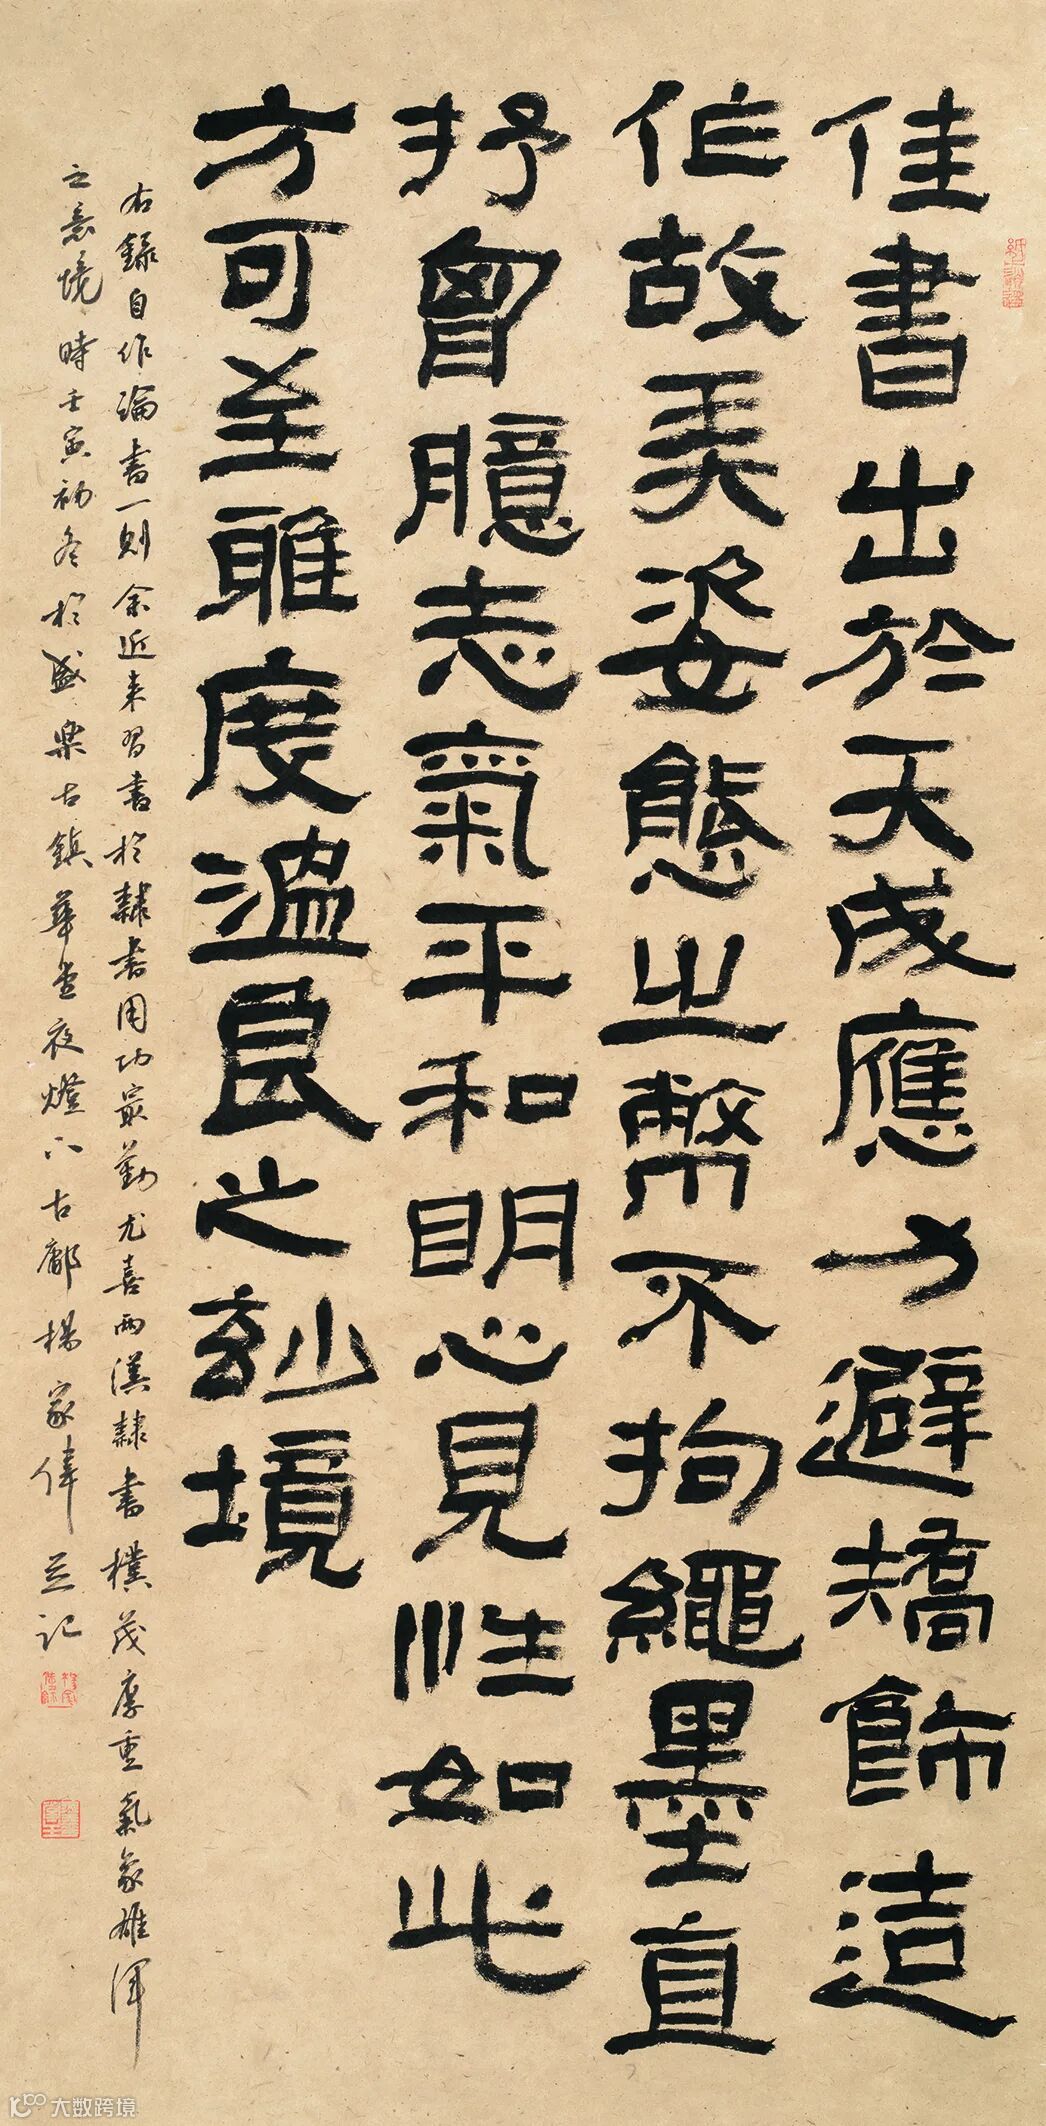 佳書出於天成應力避矯飾造
作故美姿態之幣不拘繩墨直
抒胷臆志氣平和明心見性如此
方可至雅度溫良之玅境
右録自作論書一則余近来習書於隸書用功最勤尤喜兩漢隸書樸茂厚重氣象雄渾
之意境時壬寅初冬於盛樂古鎮華堂夜燈下古鄘楊家偉並记
大数跨境